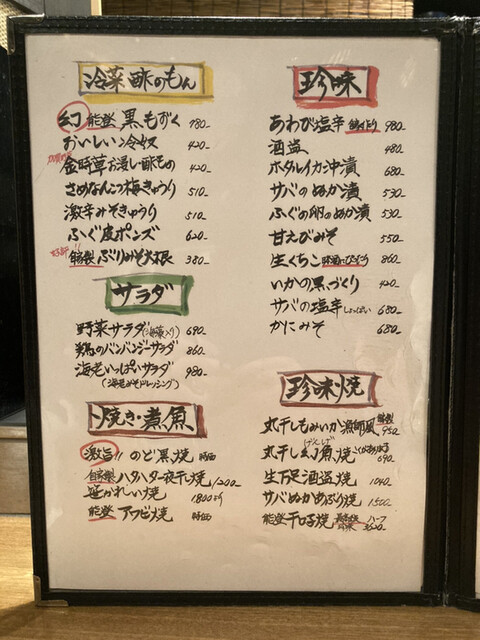 冷菜 酢のもん
幻 能登 黒もずく 980-
おいしい冷奴 420-
金時草お浸し・酢もの 420-
さめなんこつ梅きゅうり 510-
激辛みそきゅうり 510-
ふぐ皮ポンズ 620-
自家製 ぶりみそ大根 380-
サラダ
野菜サラダ(海藻入り) 690-
鶏のバンバンジーサラダ 860-
海老いっぱいサラダ 980-
(海老みそドレッシング)
焼き・煮魚
激旨!! のど黒焼 時価
自家製 ハタハタ一夜干し焼 1200-
笹かれい焼 1800より
能登 アワビ焼 時価
珍味
あわび塩辛 980-
酒盗 480-
ホタルイカ沖漬 680-
サバのぬか漬 530-
ふぐの卵のぬか漬 530-
甘えびみそ 550-
生くちこ 日本酒にぴったり 860-
いかの黒づくり 420-
サバの塩辛 しょっぱい 680-
かにみそ 680-
珍味焼
丸干しもみいか漁師風 特製 950-
丸干し幻魚焼 げんげ 690-
生万足酒盗焼 1040-
サバぬかあぶり焼 1500-
能登 干口子焼 ハーフ 3620-